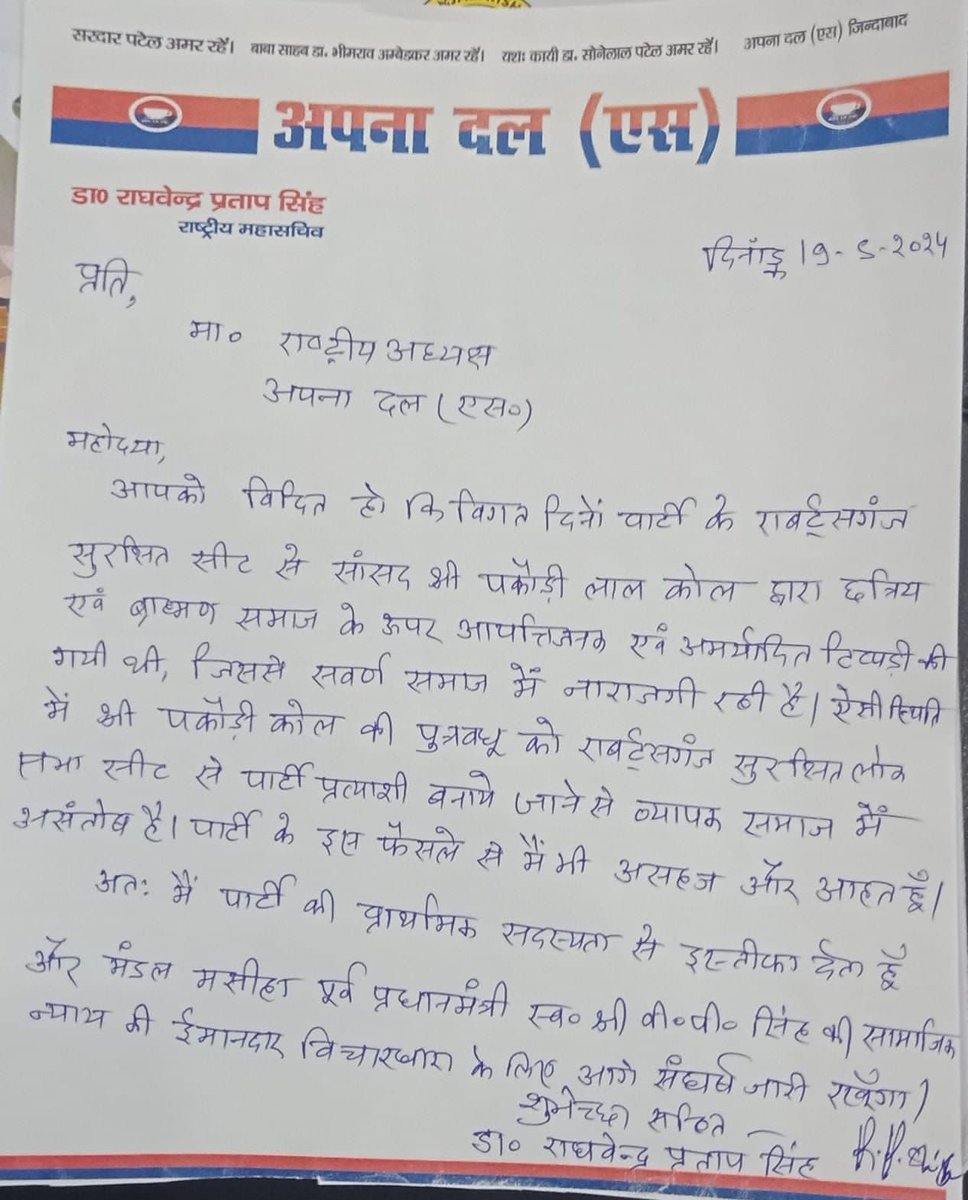 सरदार पटेल अमर रहें। बाबा साहब डा. भीमराव अम्बेडकर अमर रहें। यशः कायी डा. सोनेलाल पटेल अमर रहें। अपना दल (एस) जिन्दाबाद
अपना दल (एस)
डा0 राघवेन्द्र प्रताप सिंह
राष्ट्रीय महासचिव
दिनाँङ्क 19-5-2024
प्रति,
मा० राष्ट्रीय अध्यक्ष
अपना दल (एस०)
महोदया,
आपको विदित हो कि विगत दिनों पार्टी के राबर्ट्सगंज
सुरक्षित सीट से सांसद श्री पकौड़ी लाल कोल द्वारा छत्रिय
एवं ब्राह्मण समाज के ऊपर आपत्तिजनक एवं अमर्यादित टिप्पड़ी की
गयी थी, जिससे सवर्ण समाज में नाराजगी रही है। ऐसी स्थिति
में श्री पकौड़ी कोल की पुत्रवधू को राबर्ट्सगंज सुरक्षित लोक
सभा सीट से पार्टी प्रत्याशी बनाये जाने से व्यापक समाज में
असंतोष है। पार्टी के इस फैसले से मैं भी असहज और आहत हूँ।
अतः मैं पार्टी की प्राथमिक सदस्यता से इस्तीफा देता हूँ
और मंडल मसीहा पूर्व प्रधानमंत्री स्व० श्री वी०पी० सिंह की सामाजिक
न्याय की ईमानदार विचारधारा के लिए आगे संघर्ष जारी रखूँगा।
शुभेच्छा सहित
डा० राघवेन्द्र प्रताप सिंह